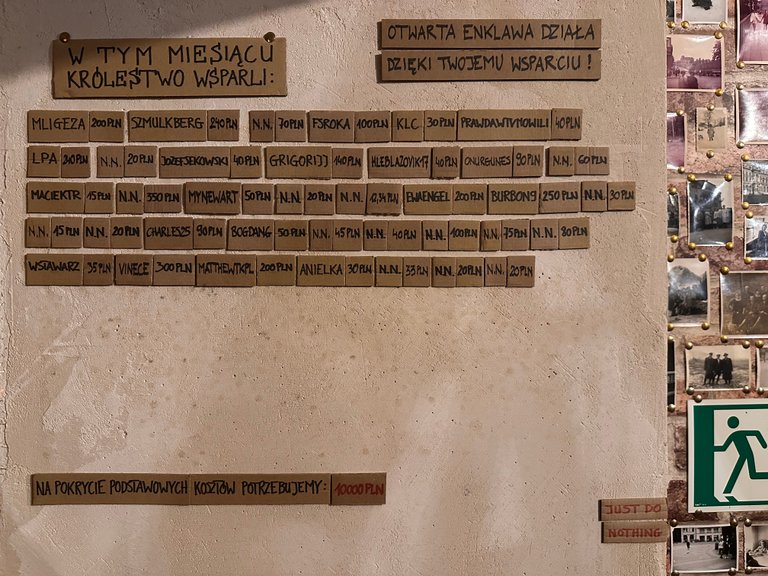 W TYM MIESIĄCU
KRÓLESTWO WSPARLI:
OTWARTA ENKLAWA DZIAŁA
DZIĘKI TWOJEMU WSPARCIU!
MLIGEZA 200 PLN SZMULKBERG 240 PLN N.N. 70 PLN FSROKA 100 PLN KLC 30 PLN PRAWDAWTVNOWILI 40 PLN
LPA 210 PLN N.N. 20 PLN JOZEFJEKOWSKI 40 PLN GRIGORIJJ 140 PLN HLEBLAZOVIK17 40 PLN ONURGUNES 90 PLN N.N. 60 PLN
MACIEKTR 15 PLN N.N. 350 PLN MYNEWART 50 PLN N.N. 20 PLN N.N. 12,34 PLN EWAENGEL 200 PLN BURBON9 250 PLN N.N. 30 PLN
N.N. 15 PLN N.N. 20 PLN CHARLES25 90 PLN BOGDANG 50 PLN N.N. 45 PLN N.N. 40 PLN N.N. 100 PLN N.N. 75 PLN N.N. 80 PLN
WSTAWARZ 35 PLN VINECE 300 PLN MATTHEWTKPL 200 PLN ANIELKA 30 PLN N.N. 33 PLN N.N. 20 PLN N.N. 20 PLN
NA POKRYCIE PODSTAWOWYCH KOSZTÓW POTRZEBUJEMY: 10000 PLN
JUST DO
NOTHING